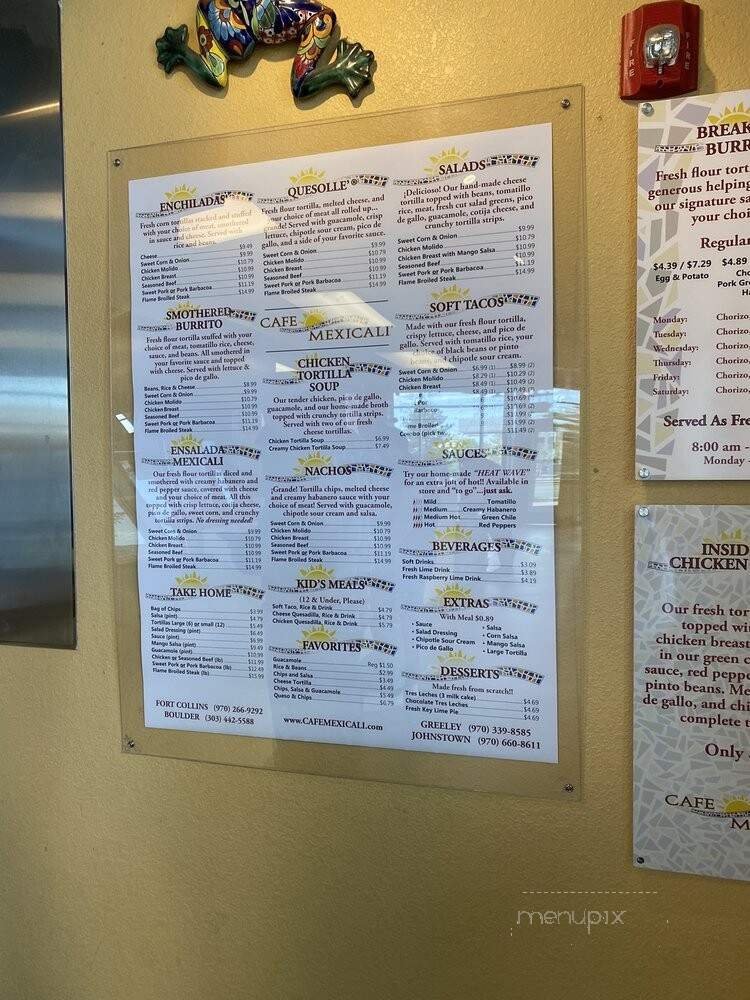 ENCHILADAS
Fresh corn tortillas stacked and stuffed
with your choice of meat, smothered
in sauce and cheese. Served with
rice and beans.
Cheese $9.49
Sweet Corn & Onion $9.99
Chicken Molido $10.79
Chicken Breast $10.99
Seasoned Beef $10.99
Sweet Pork or Pork Barbacoa $11.19
Flame Broiled Steak $14.99
SMOTHERED
BURRITO
Fresh flour tortilla stuffed with your
choice of meat, tomatillo rice, cheese,
sauce, and beans. All smothered in
your favorite sauce and topped
with cheese. Served with lettuce &
pico de gallo.
Beans, Rice & Cheese $8.99
Sweet Corn & Onion $9.99
Chicken Molido $10.79
Chicken Breast $10.99
Seasoned Beef $10.99
Sweet Pork or Pork Barbacoa $11.19
Flame Broiled Steak $14.99
ENSALADA
MEXICALI
Our fresh flour tortillas diced and
smothered with creamy habanero and
red pepper sauce, covered with cheese
and your choice of meat. All this
topped with crisp lettuce, cotija cheese,
pico de gallo, sweet corn, and crunchy
tortilla strips. No dressing needed!
Sweet Corn & Onion $9.99
Chicken Molido $10.79
Chicken Breast $10.99
Seasoned Beef $10.99
Sweet Pork or Pork Barbacoa $11.19
Flame Broiled Steak $14.99
TAKE HOME
Bag of Chips $3.99
Salsa (pint) $4.79
Tortillas Large (6) or small (12) $5.49
Salad Dressing (pint) $6.49
Sauce (pint) $6.99
Mango Salsa (pint) $9.49
Guacamole (pint) $10.99
Chicken or Seasoned Beef (lb) $11.99
Sweet Pork or Pork Barbacoa (lb) $12.49
Flame Broiled Steak (lb) $15.99
FORT COLLINS (970) 266-9292
BOULDER (303) 442-5588
QUESOLLE'®
Fresh flour tortilla, melted cheese, and
your choice of meat all rolled up...
¡Grande! Served with guacamole, crisp
lettuce, chipotle sour cream, pico de
gallo, and a side of your favorite sauce.
Sweet Corn & Onion $9.99
Chicken Molido $10.79
Chicken Breast $10.99
Seasoned Beef $10.99
Sweet Pork or Pork Barbacoa $11.19
Flame Broiled Steak $14.99
CAFE MEXICALI
CHICKEN
TORTILLA
SOUP
Our tender chicken, pico de gallo,
guacamole, and our home-made broth
topped with crunchy tortilla strips.
Served with two of our fresh
cheese tortillas.
Chicken Tortilla Soup $6.99
Creamy Chicken Tortilla Soup $7.49
NACHOS
¡Grande! Tortilla chips, melted cheese
and creamy habanero sauce with your
choice of meat! Served with guacamole,
chipotle sour cream and salsa.
Sweet Corn & Onion $9.99
Chicken Molido $10.79
Chicken Breast $10.99
Seasoned Beef $10.99
Sweet Pork or Pork Barbacoa $11.19
Flame Broiled Steak $14.99
KID'S MEALS
(12 & Under, Please)
Soft Taco, Rice & Drink $4.79
Cheese Quesadilla, Rice & Drink $4.79
Chicken Quesadilla, Rice & Drink $5.79
FAVORITES
Guacamole Reg $1.50
Rice & Beans $2.99
Chips and Salsa $2.99
Cheese Tortilla $3.49
Chips, Salsa & Guacamole $4.49
Queso & Chips $6.79
www.CAFEMEXICALI.com
SALADS
¡Delicioso! Our hand-made cheese
tortilla topped with beans, tomatillo
rice, meat, fresh cut salad greens, pico
de gallo, guacamole, cotija cheese, and
crunchy tortilla strips.
Sweet Corn & Onion $9.99
Chicken Molido $10.79
Chicken Breast with Mango Salsa $10.99
Seasoned Beef $10.99
Sweet Pork or Pork Barbacoa $11.19
Flame Broiled Steak $14.99
SOFT TACOS
Made with our fresh flour tortilla,
crispy lettuce, cheese, and pico de
gallo. Served with tomatillo rice, your
choice of black beans or pinto
beans, & chipotle sour cream.
Sweet Corn & Onion $6.99 (1) $8.99 (2)
Chicken Molido $8.29 (1) $10.29 (2)
Chicken Breast $8.49 (1) $10.49 (2)
SAUCES
Try our home-made "HEAT WAVE"
for an extra jolt of hot!! Available in
store and "to go"...just ask.
Mild Tomatillo
Medium Creamy Habanero
Medium Hot Green Chile
Hot Red Peppers
BEVERAGES
Soft Drinks $3.09
Fresh Lime Drink $3.89
Fresh Raspberry Lime Drink $4.19
EXTRAS
With Meal $0.89
• Sauce • Salsa
• Salad Dressing • Corn Salsa
• Chipotle Sour Cream • Mango Salsa
• Pico de Gallo • Large Tortilla
DESSERTS
Made fresh from scratch!!
Tres Leches (3 milk cake) $4.69
Chocolate Tres Leches $4.69
Fresh Key Lime Pie $4.69
GREELEY (970) 339-8585
JOHNSTOWN (970) 660-8611
FIRE
FIRE
BREAK
BURR
Fresh flour tort
generous helping
our signature sa
your cho
Regula
$4.39 / $7.29 $4.89
Egg & Potato Cho
Pork Gre
Ha
Monday: Chorizo,
Tuesday: Chorizo,
Wednesday: Chorizo,
Thursday: Chorizo,
Friday: Chorizo,
Saturday: Chorizo,
Served As Fre
8:00 am -
Monday -
INSID
CHICKEN
Our fresh tor
topped wit
chicken breast
in our green c
sauce, red peppe
pinto beans. Me
de gallo, and chi
complete t
Only
CAFE
M
menupix